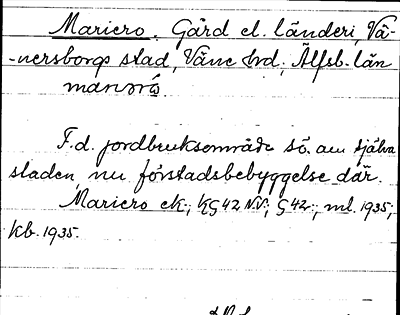 Mariero. Gård el. länderi, Vä-
-nersborgs stad, Väne hrd; Älfsb. län
F.d. jordbruksområde sö. om själva
staden, nu förstadsbebyggelse där.
Mariero ek.; KG 42 NV; G 42; ml. 1935;
kb. 1935.